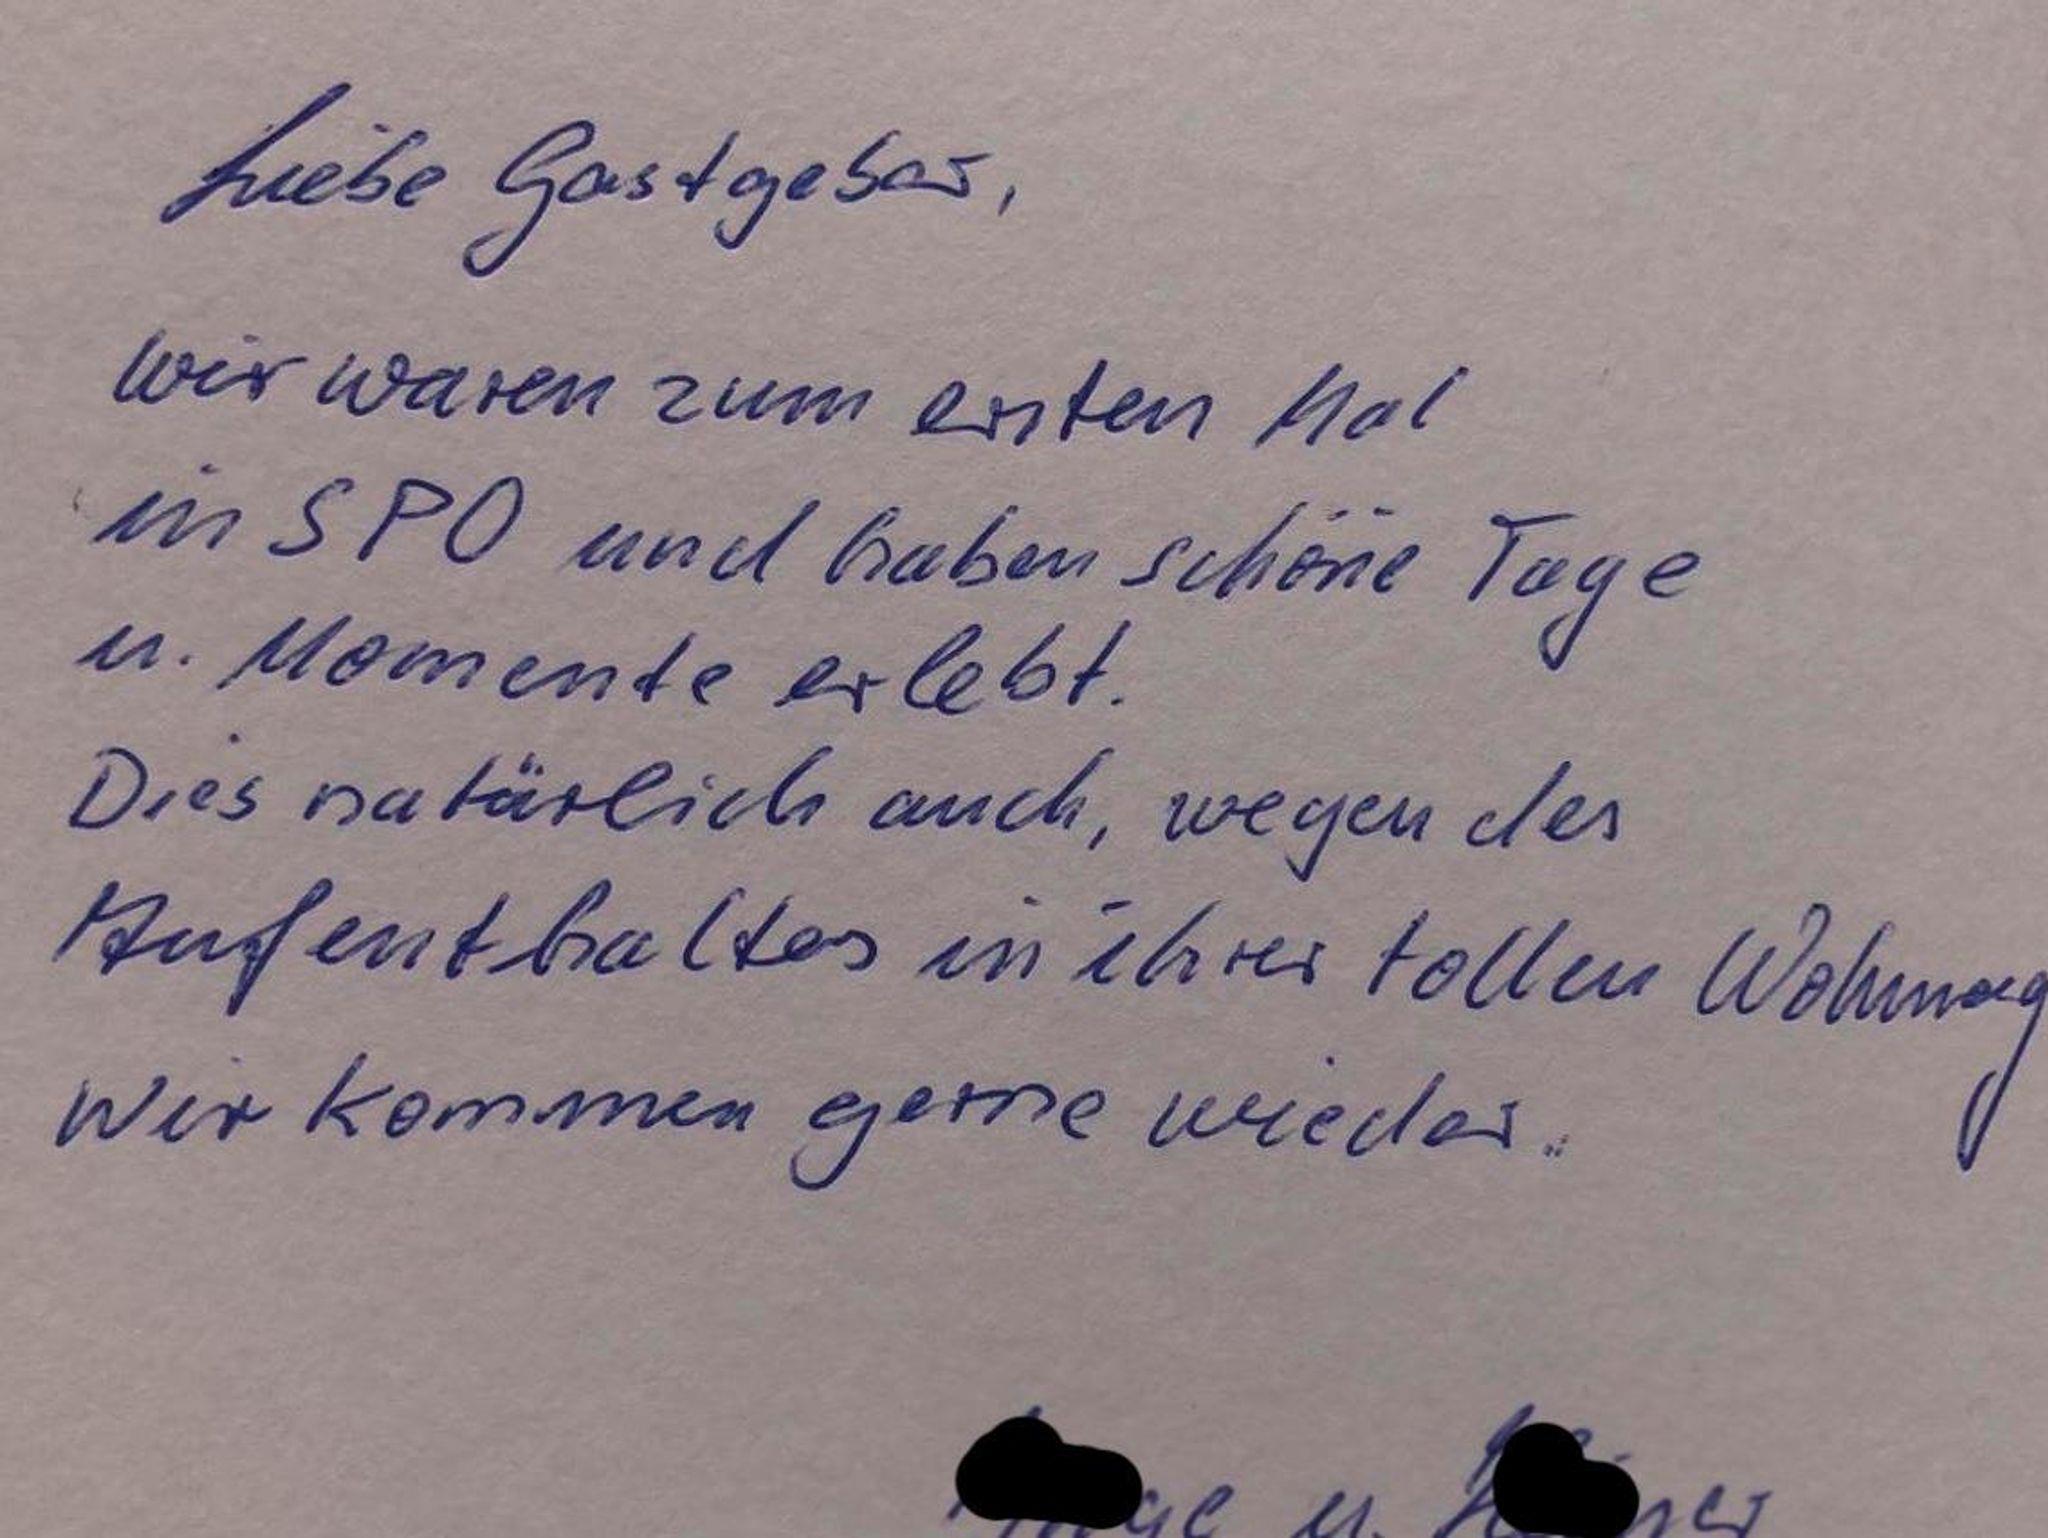 Liebe Gastgeber,
wir waren zum ersten Mal
in SPO und haben schöne Tage
u. Momente erlebt.
Dies natürlich auch, wegen des
Aufenthaltes in ihrer tollen Wohnung
Wir kommen gerne wieder.
u.